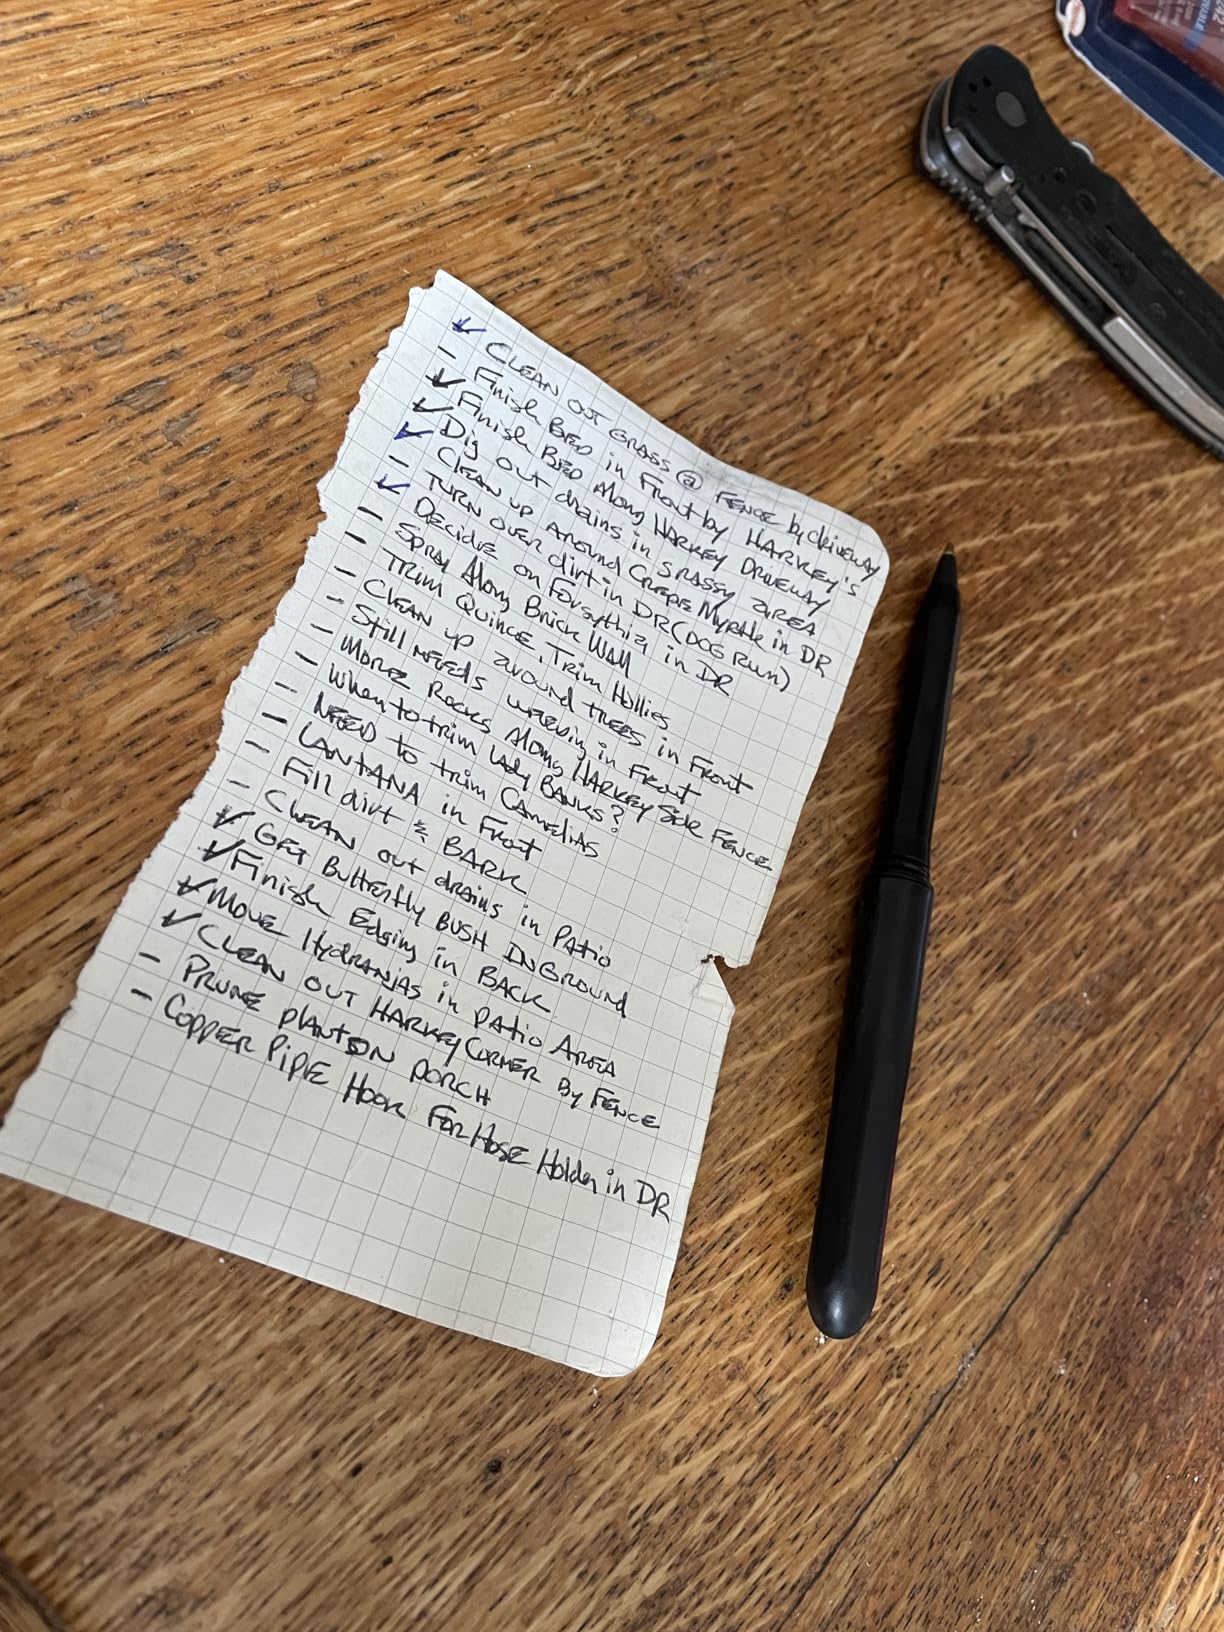 ✓ CLEAN OUT GRASS @ FENCE by driveway
- Finish BED in Front by HARKEY's
✓ Finish BED Along HARKEY DRIVEWAY
✓ Dig out drains in grassy AREA
✓ CLEAN up around Crepe Myrtle in DR
- TURN OVER dirt in DR (DOG RUN)
✓ Decide on Forsythia in DR
- Spray Along Brick Wall
- TRIM Quince, Trim Hollies
- CLEAN up around TREES in Front
- Still needs weeding in Front
- MORE Rocks Along HARKEY Side FENCE
- When to trim Lady BANKS?
- NEED to trim CAMELiAS
- LANTANA in Front
- Fill dirt & BARK
- CLEAN out drains in PAtio
✓ GET Butterfly BUSH IN GROUND
✓ Finish Edging in BACK
✓ MOVE Hydranjas in PAtio AREA
✓ CLEAN OUT HARKEY CORNER By FENCE
- PRUNE PLANTS ON PORCH
- COPPER PIPE HOOK FOR HOSE Holder in DR